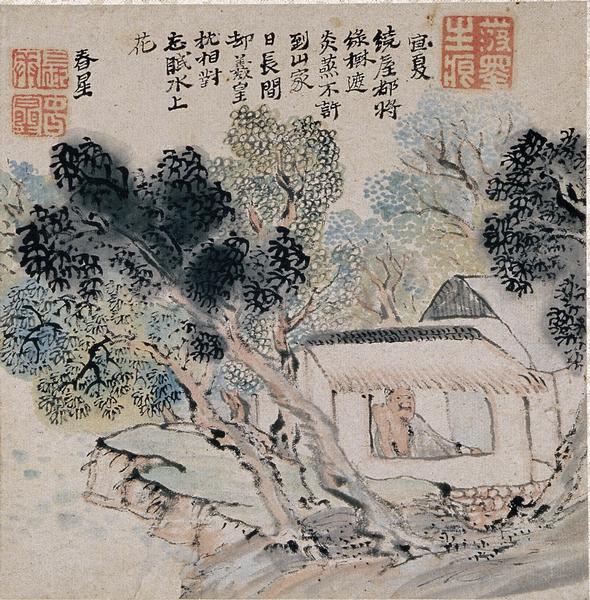 潑墨生痕
宜夏
繞屋都將
緑樹遮
炎蒸不許
到山家
日長間
却羲皇
枕相對
忘眠水上
花
春星